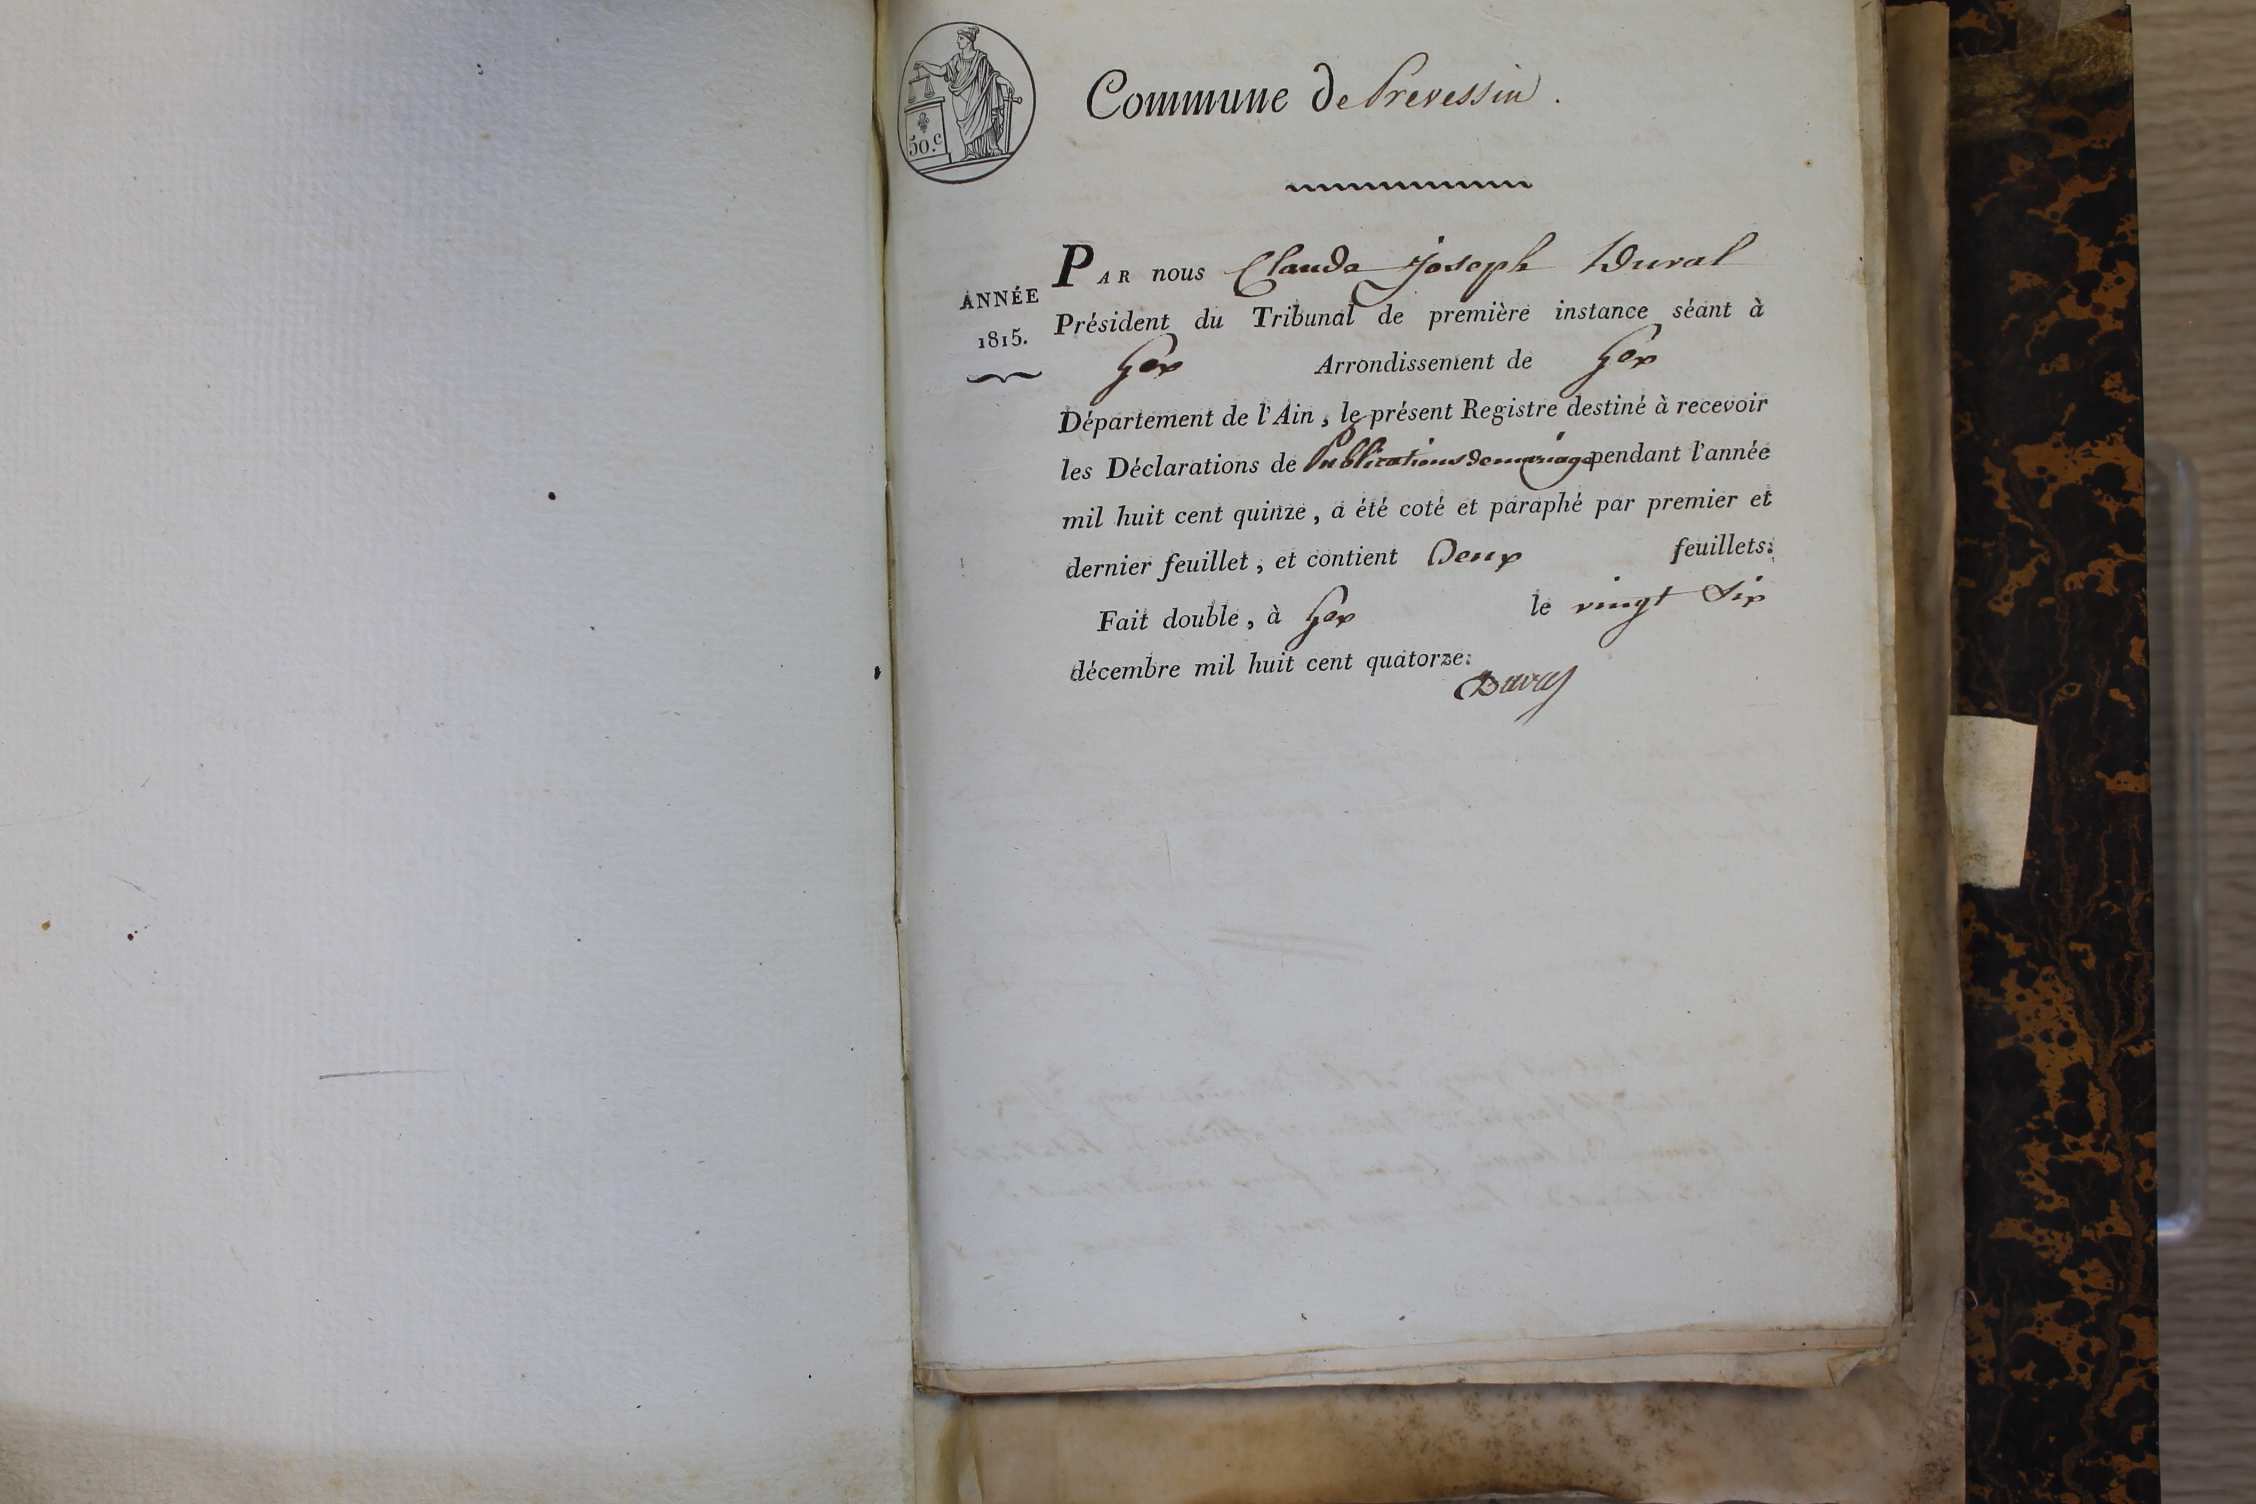 50.c
Commune de Prevessin.
ANNÉE
1815.
PAR nous Claude Joseph Duval
Président du Tribunal de première instance séant à
Gex Arrondissement de Gex
Département de l'Ain, le présent Registre destiné à recevoir
les Déclarations de Publications de mariage pendant l'année
mil huit cent quinze, a été coté et paraphé par premier et
dernier feuillet, et contient Deux feuillets.
Fait double, à Gex le vingt Six
décembre mil huit cent quatorze.
Duval